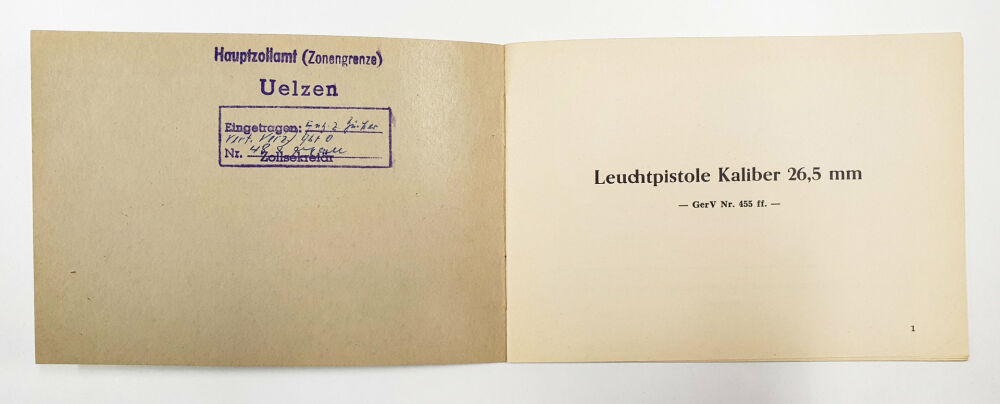 Hauptzollamt (Zonengrenze)
Uelzen
Eingetragen:
Nr. 48
Zollsekretär
Leuchtpistole Kaliber 26,5 mm
— GerV Nr. 455 ff. —
1